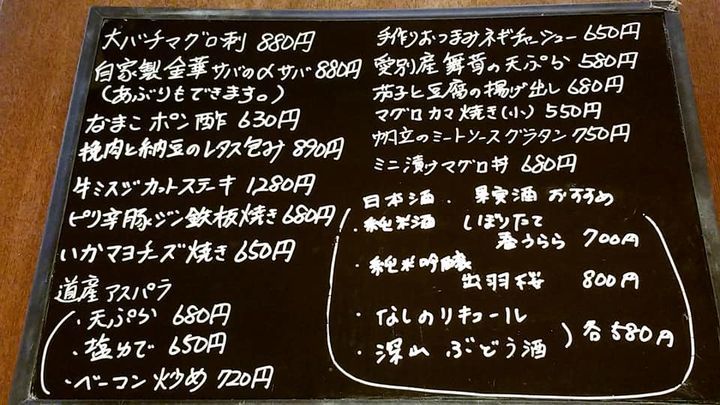 大バチマグロ刺 880円
自家製金華サバの〆サバ 880円
(あぶりもできます。)
なまこポン酢 630円
挽肉と納豆のレタス包み 890円
牛ミスヅカットステーキ 1280円
ピリ辛豚ジン鉄板焼き 680円
いかマヨチーズ焼き 650円
道産アスパラ
・天ぷら 680円
・塩ゆで 650円
・ベーコン炒め 720円
手作りおつまみネギチャーシュー 650円
愛別産舞茸の天ぷら 580円
茄子と豆腐の揚げ出し 680円
マグロカマ焼き(小) 550円
帆立のミートソースグラタン 750円
ミニ漬けマグロ丼 680円
日本酒・果実酒おすすめ
・純米酒 しぼりたて
春うらら 700円
・純米吟醸
出羽桜 800円
・なしのリキュール
・深山ぶどう酒 ) 各580円